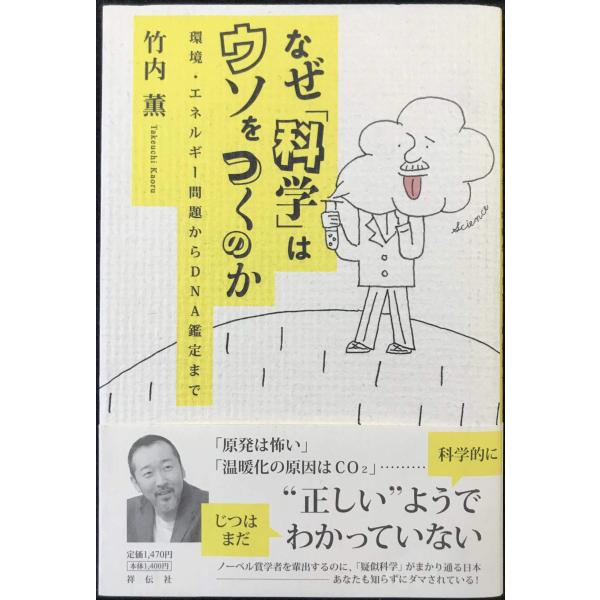 なぜ「科学」は
ウソをつくのか
環境・エネルギー問題からDNA鑑定まで
竹内 薫
Takeuchi Kaoru
Science
「原発は怖い」
「温暖化の原因はCO₂」………
科学的に
“正しい”ようで
じつは
まだ
わかっていない
ノーベル賞学者を輩出するのに、「疑似科学」がまかり通る日本
——あなたも知らずにダマされている！
定価1,470円
本体1,400円
祥伝社